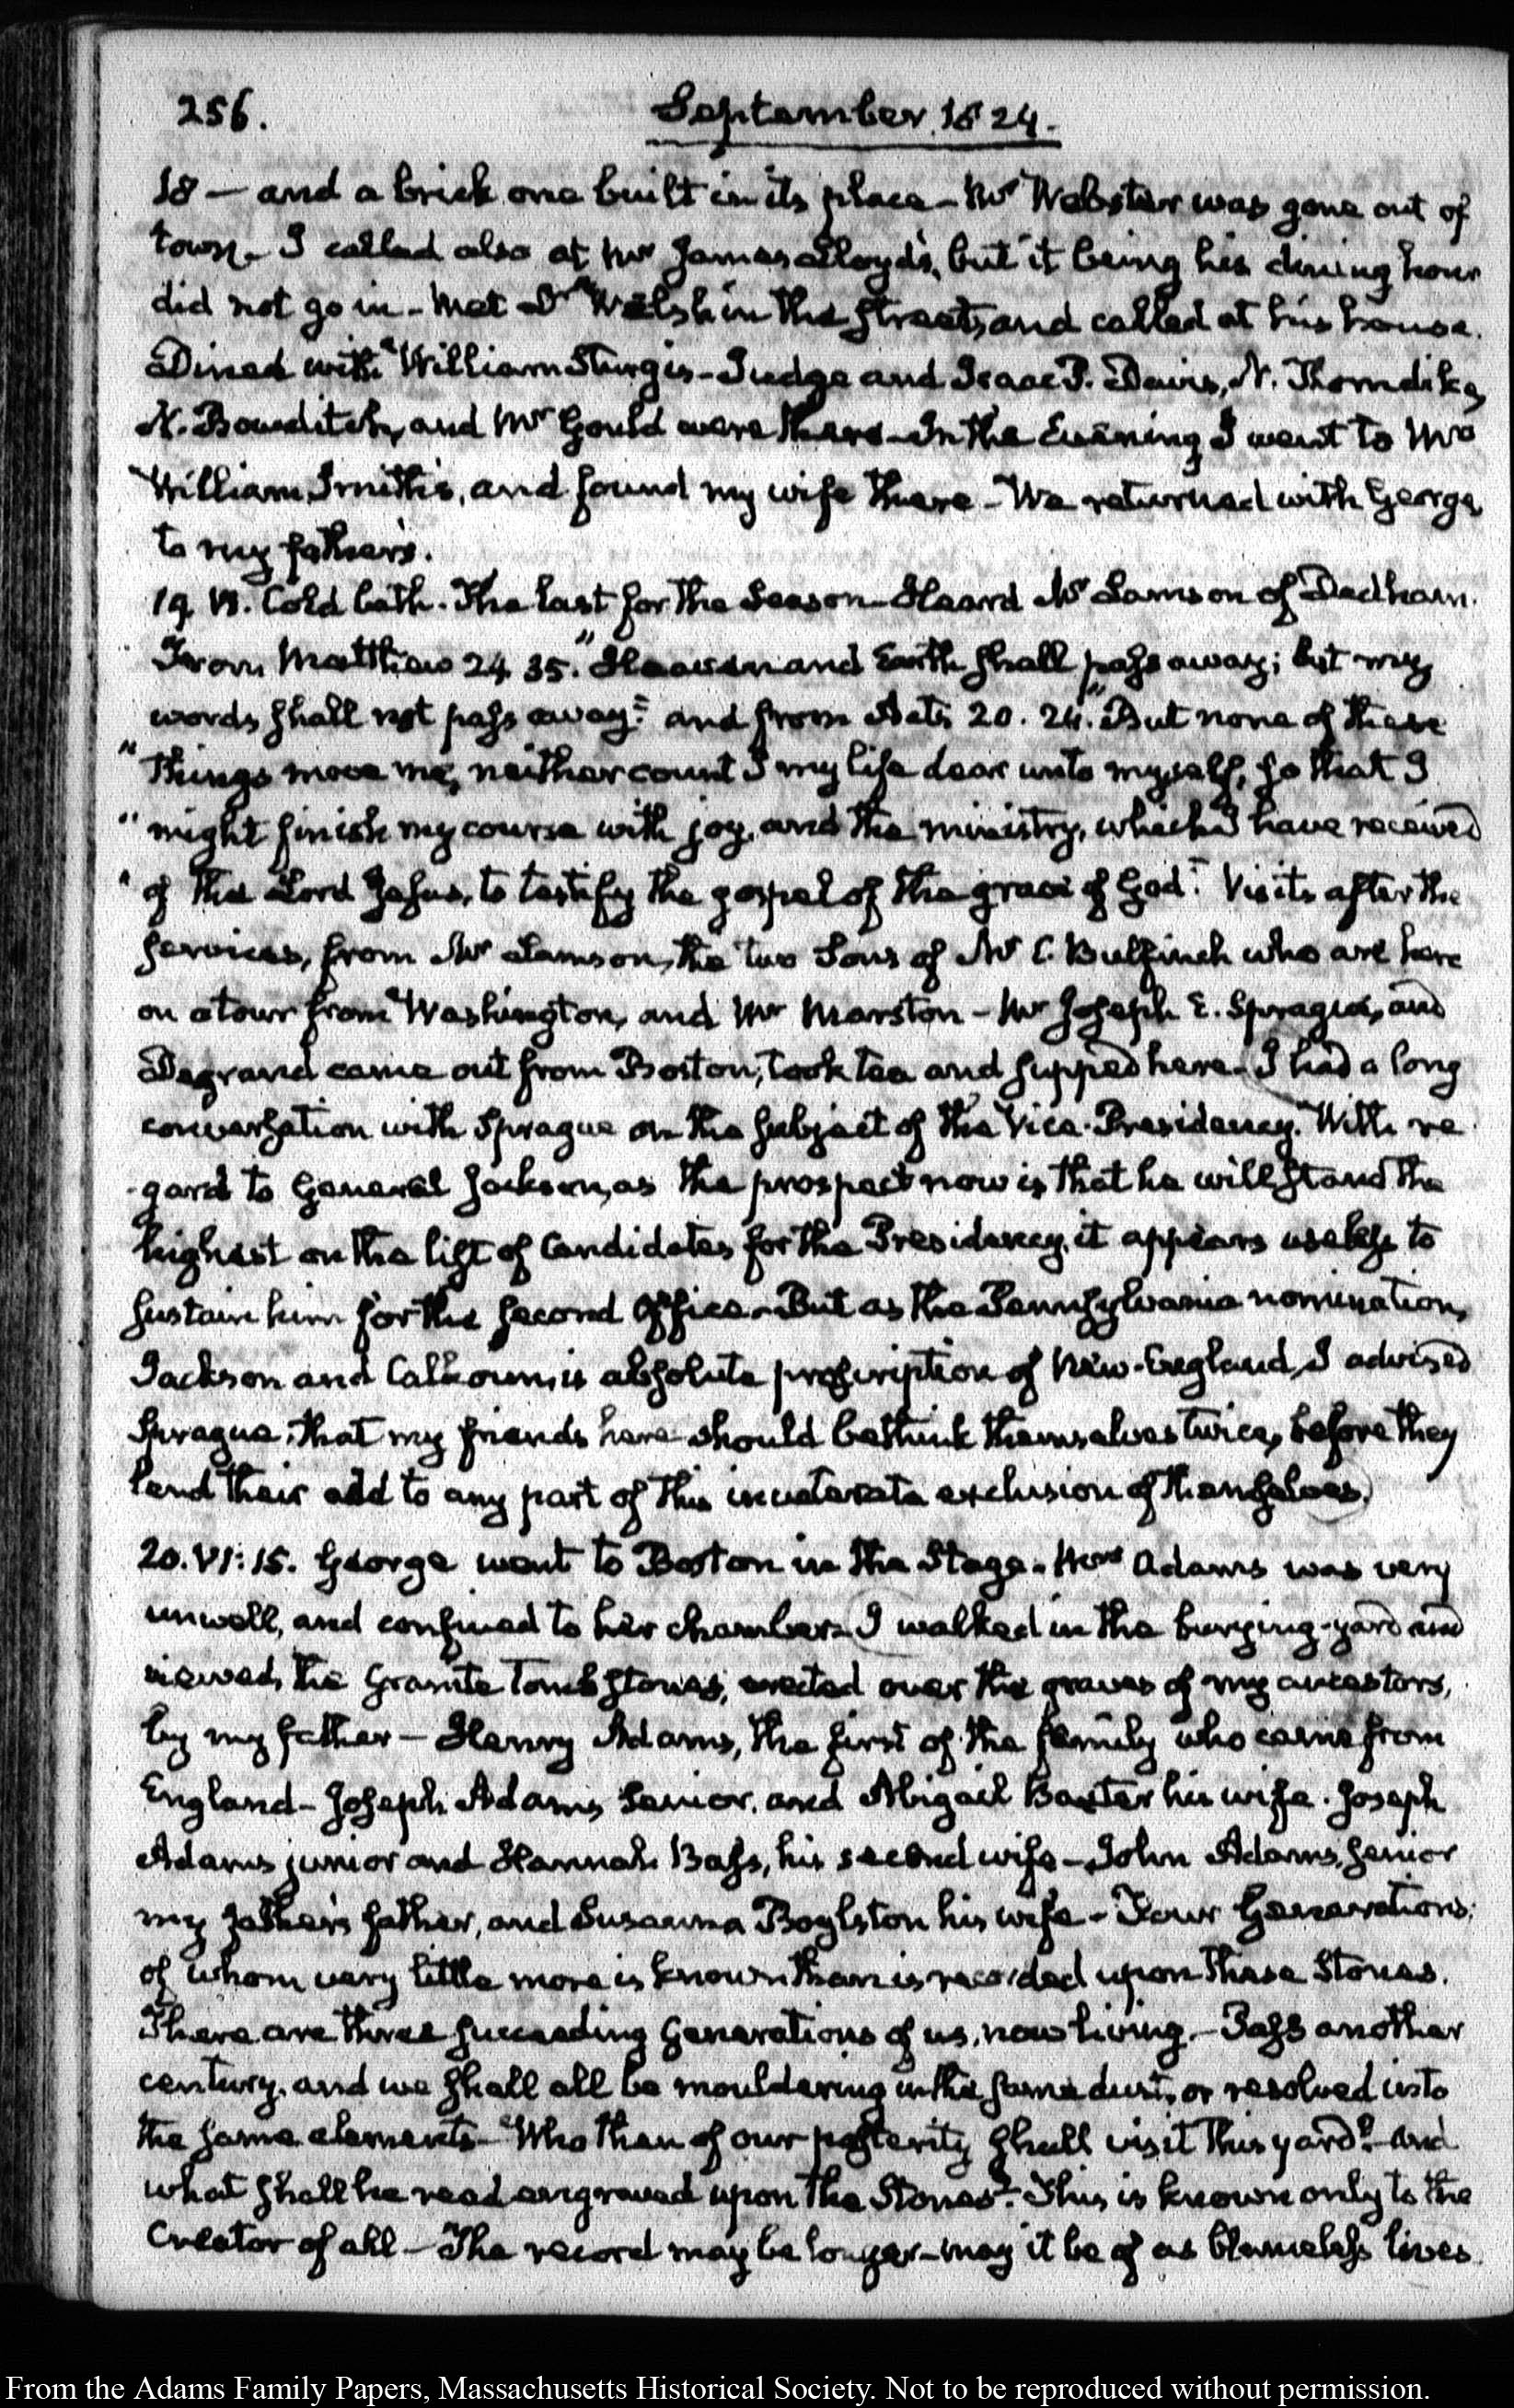 256.
September 1824.
18 — and a brick one built in its place - Mr Webster was gone out of
town. I called also at Mr James Lloyd's, but it being his dining hour
did not go in - Met Dr Welsh in the Street, and called at his house.
Dined with William Sturgis - Judge and Isaac P. Davis, N. Thorndike,
N. Bowditch, and Mr Gould were there - In the Evening I went to Mrs
William Smith's, and found my wife there - We returned with George,
to my father's.
19. VI. Cold bath. The last for the Season - Heard Mr Lamson of Dedham.
From Matthew 24. 35. "Heaven and Earth shall pass away; but my
words shall not pass away." and from Acts 20. 24. "But none of these
"things move me, neither count I my life dear unto myself, so that I
"might finish my course with joy, and the ministry, which I have received
"of the Lord Jesus, to testify the gospel of the grace of God." Visits after the
services, from Mr Lamson, the two Sons of Mr C. Bulfinch who are here
on a tour from Washington, and Mr Marston - Mr Joseph E. Sprague, and
Degrand came out from Boston, took tea and supped here. I had a long
conversation with Sprague on the subject of the Vice-Presidency. With re
-gard to General Jackson, as the prospect now is that he will stand the
highest on the list of Candidates for the Presidency, it appears useless to
sustain him for the second Office - But as the Pennsylvania nomination,
Jackson and Calhoun, is absolute proscription of New-England, I advised
Sprague, that my friends here should bethink themselves twice, before they
lend their aid to any part of this inveterate exclusion of themselves.
20. VI: 15. George went to Boston in the Stage. Mrs Adams was very
unwell, and confined to her chamber - I walked in the burying-yard and
viewed, the Granite tomb stones, erected over the graves of my ancestors,
by my father — Henry Adams, the first of the family who came from
England - Joseph Adams, Senior, and Abigail Baxter his wife. Joseph
Adams junior and Hannah Bass, his second wife - John Adams, Senior
my father's father, and Susanna Boylston his wife - Four Generations,
of whom very little more is known than is recorded upon these Stones.
There are three succeeding Generations of us, now living. - Pass another
century, and we shall all be mouldering in the same dust, or resolved into
the same elements - Who then of our posterity shall visit this yard? - and
what shall he read engraved upon the Stones? - This is known only to the
Creator of all - The record may be longer - may it be of as blameless lives.
From the Adams Family Papers, Massachusetts Historical Society. Not to be reproduced without permission.